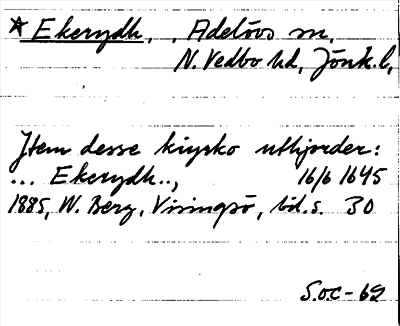 * Ekerydh, . Adelövs sn,
N. Vedbo hd, Jönk. l,
Item desse kiyrko uthjorder:
... Ekerydh.., 16/6 1645
1885, W. Berg, Visingsö, bd. s. 30
S.O.C-69